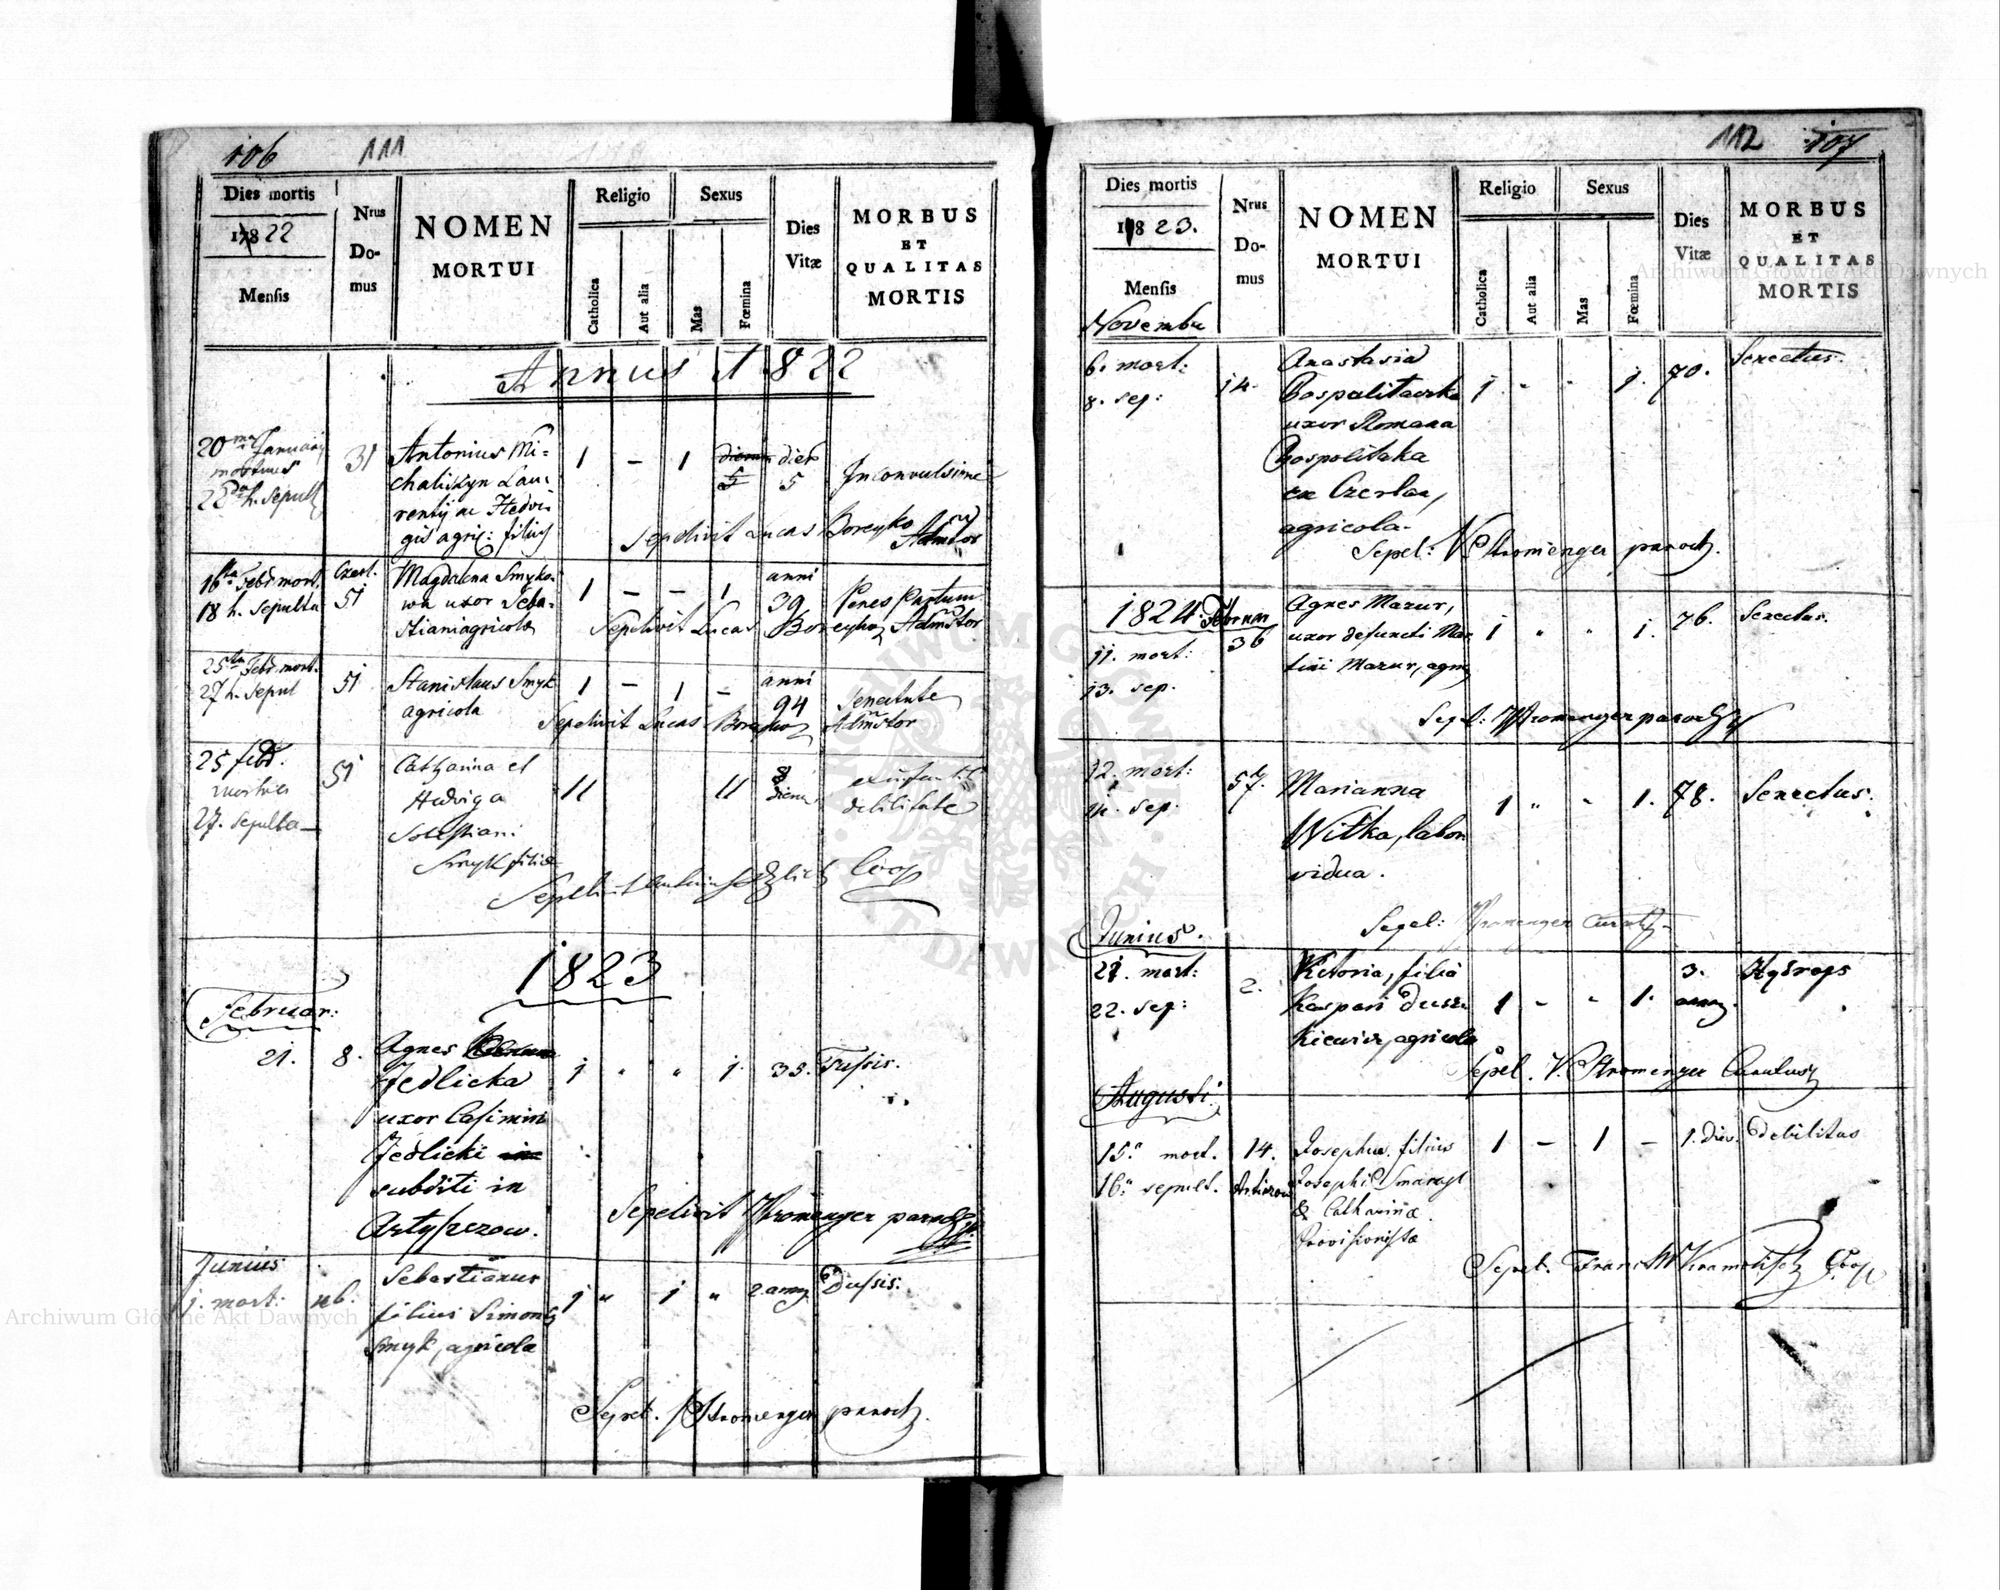 106 111
Dies mortis
1822
Mensis
Nrus
Do-
mus
NOMEN
MORTUI
Religio
Catholica
Aut alia
Sexus
Mas
Fœmina
Dies
Vitæ
MORBUS
ET
QUALITAS
MORTIS
Annus 1822
20 January
mortuus
22 h. sepult
31
Antonius Mi=
chaliszyn Lau-
rentij ac Hedvi-
gis agric: filius
1 – 1
5
dies
5
Sepelivit Lucas Boreyko Admstor
16ta Febr mort.
18 h. sepulta
51
Magdalena Smyko-
wa uxor Seba-
stiani agricola
1 – – 1
anni
39
Penes Partum
Sepelivit Lucas Boreyko Admstor
25ta Febr mort.
27 h. sepul
51
Stanislaus Smyk
agricola
1 – 1 –
anni
94
Senectute
Sepelivit Lucas Boreyko Admstor
25 febr.
27. sepulta
51
Catharina et
Hedviga
Smyk filiæ
11 11
8
debilitate
Sepelivit Coop
1823
Februar:
21. 8.
Agnes
Jedlicka
uxor Casimiri
Jedlicki
subditi in
Artyszczow.
1 " " 1 35. Tussis.
Sepelivit Stromenger paroch
Junius
1. mort:
Sebastianus
filius Simonis
Smyk, agricola
1 " 1 " 2. Tussis.
Sepel. Stromenger paroch.
112 107
Dies mortis
1823.
Mensis
Novembr
Nrus
Do-
mus
NOMEN
MORTUI
Religio
Catholica
Aut alia
Sexus
Mas
Fœmina
Dies
Vitæ
MORBUS
ET
QUALITAS
MORTIS
6. mort:
8. sep:
14.
Anastasia
Pospolitaczka
uxor Romana
Pospolitaka
ex
agricola.
1 - - 1. 70. Senectus.
Sepel: V. Stromenger paroch.
1824. Februar
11. mort:
13. sep.
36
Agnes Mazur,
uxor defuncti Mar
tini Mazur, agric
1 " " 1. 76. Senectus.
Sepel: Stromenger paroch
12. mort:
14. sep.
57.
Marianna
Witka, labor
vidua.
1 " - 1. 78. Senectus.
Sepel: Stromenger Curat
Junius.
21. mort:
22. sep:
2.
Victoria, filia
Kaspari Dusz
kiewicz, agricola
1 - - 1. 3. Hydrops
Sepel. V. Stromenger Curatus
Augusti.
15a mort.
16a sepult.
14.
Josephus filius
Josephi
& Catharinæ
Provisionistæ
1 – 1 – 1. Debilitas
Sepel. Franc Coop
Archiwum Główne Akt Dawnych
Archiwum Główne Akt Dawnych